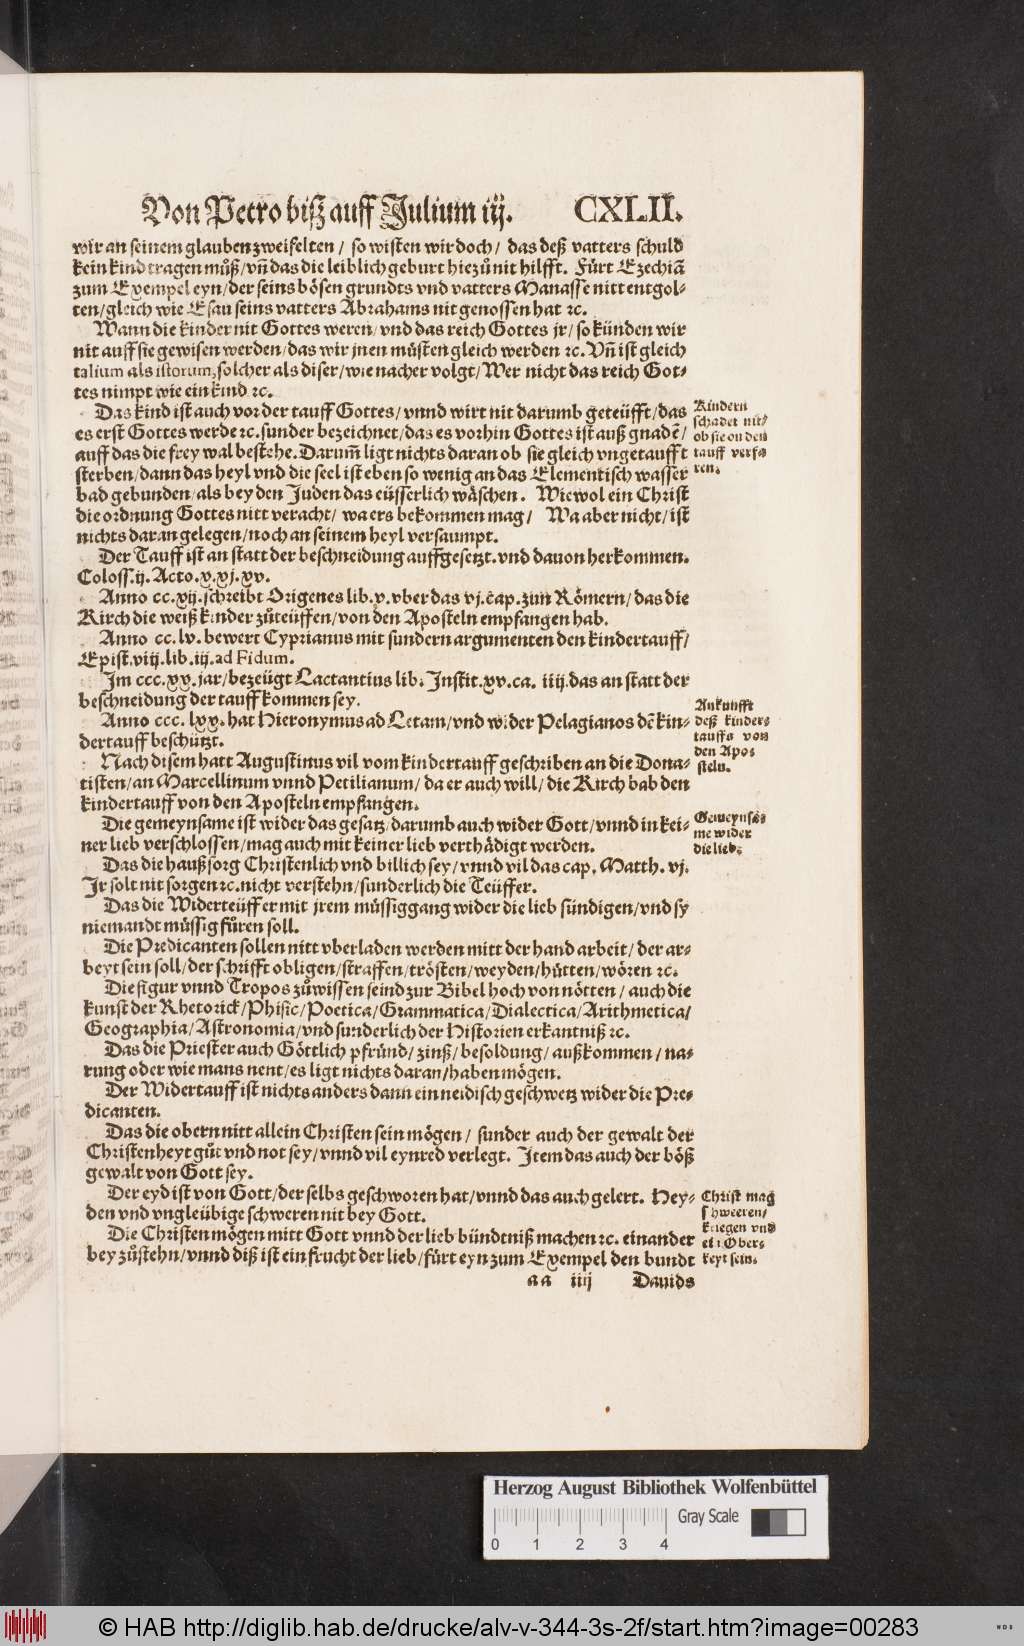 Von Petro biß auff Julium iij. CXLII.
wir an seinem glauben zweifelten / so wisten wir doch / das deß vatters schuld
kein kind tragen můß / vñ das die leiblich geburt hiezů nit hilfft. Fürt Ezechiā
zum Exempel eyn / der seins bösen grundts vnd vatters Manasse nitt entgol-
ten / gleich wie Esau seins vatters Abrahams nit genossen hat ꝛc.
Wann die kinder nit Gottes weren / vnd das reich Gottes jr / so künden wir
nit auff sie gewisen werden / das wir jnen müsten gleich werden ꝛc. Vñ ist gleich
talium als istorum, solcher als diser / wie nacher volgt / Wer nicht das reich Got-
tes nimpt wie ein kind ꝛc.
Das kind ist auch vor der tauff Gottes / vnnd wirt nit darumb geteüfft / das
es erst Gottes werde ꝛc. sunder bezeichnet / das es vorhin Gottes ist auß gnadē /
auff das die frey wal bestehe. Darum̄ ligt nichts daran ob sie gleich vngetaufft
sterben / dann das heyl vnd die seel ist eben so wenig an das Elementisch wasser
bad gebunden / als bey den Juden das eüsserlich wäschen. Wiewol ein Christ
die ordnung Gottes nitt veracht / wa ers bekommen mag / Wa aber nicht / ist
nichts daran gelegen / noch an seinem heyl versaumpt.
Kindern
schadet nit /
ob sie on den
tauff verfa
ren.
Der Tauff ist an statt der beschneidung auffgesetzt. vnd dauon herkommen.
Coloss. ij. Acto. v. xj. xv.
Anno cc. xij. schreibt Origenes lib. v. vber das vj. cap. zun Römern / das die
Kirch die weiß kinder zůteüffen / von den Aposteln empfangen hab.
Anno cc. lv. bewert Cyprianus mit sundern argumenten den kindertauff /
Epist. viij. lib. iij. ad Fidum.
Im ccc. xv. jar / bezeügt Lactantius lib. Instit. xv. ca. iiij. das an statt der
beschneidung der tauff kommen sey.
Anno ccc. lxv. hat Hieronymus ad Letam / vnd wider Pelagianos dē kin-
dertauff beschützt.
Nach disem hatt Augustinus vil vom kindertauff geschriben an die Dona-
tisten / an Marcellinum vnnd Petilianum / da er auch will / die Kirch hab den
kindertauff von den Aposteln empfangen.
Ankunfft
deß kinder-
tauffs von
den Apos
steln.
Die gemeynsame ist wider das gesatz / darumb auch wider Gott / vnnd in kei-
ner lieb verschlossen / mag auch mit keiner lieb verthädigt werden.
Gemeynsa-
me wider
die lieb.
Das die haußsorg Christenlich vnd billich sey / vnnd vil das cap. Matth. vj.
Ir solt nit sorgen ꝛc. nicht verstehn / sunderlich die Teüffer.
Das die Widerteüffer mit jrem müssiggang wider die lieb sündigen / vnd sy
niemandt müssig fůren soll.
Die Predicanten sollen nitt vberladen werden mitt der hand arbeit / der ar-
beyt sein soll / der schrifft obligen / straffen / trösten / weyden / hütten / wören ꝛc.
Die figur vnnd Tropos zůwissen seind zur Bibel hoch von nötten / auch die
kunst der Rhetorick / Phisic / Poetica / Grammatica / Dialectica / Arithmetica /
Geographia / Astronomia / vnd sunderlich der Historien erkantniß ꝛc.
Das die Priester auch Göttlich pfründ / zinß / besoldung / außkommen / na-
rung oder wie mans nent / es ligt nichts daran / haben mögen.
Der Widertauff ist nichts anders dann ein neidisch geschwetz wider die Pre-
dicanten.
Das die obern nitt allein Christen sein mögen / sunder auch der gewalt der
Christenheyt gůt vnd not sey / vnnd vil eynred verlegt. Item das auch der böß
gewalt von Gott sey.
Der eyd ist von Gott / der selbs geschworen hat / vnnd das auch gelert. Hey-
den vnd vngleübige schweren nit bey Gott.
Die Christen mögen mitt Gott vnnd der lieb bündtniß machen ꝛc. einander
bey zůstehn / vnnd diß ist ein frucht der lieb / fürt eyn zum Exempel den bundt
Christ mag
schweeren /
kriegen vnd
ein Ober-
keyt sein.
aa iiij Dauids
Herzog August Bibliothek Wolfenbüttel
0 1 2 3 4 Gray Scale
© HAB http://diglib.hab.de/drucke/alv-v-344-3s-2f/start.htm?image=00283